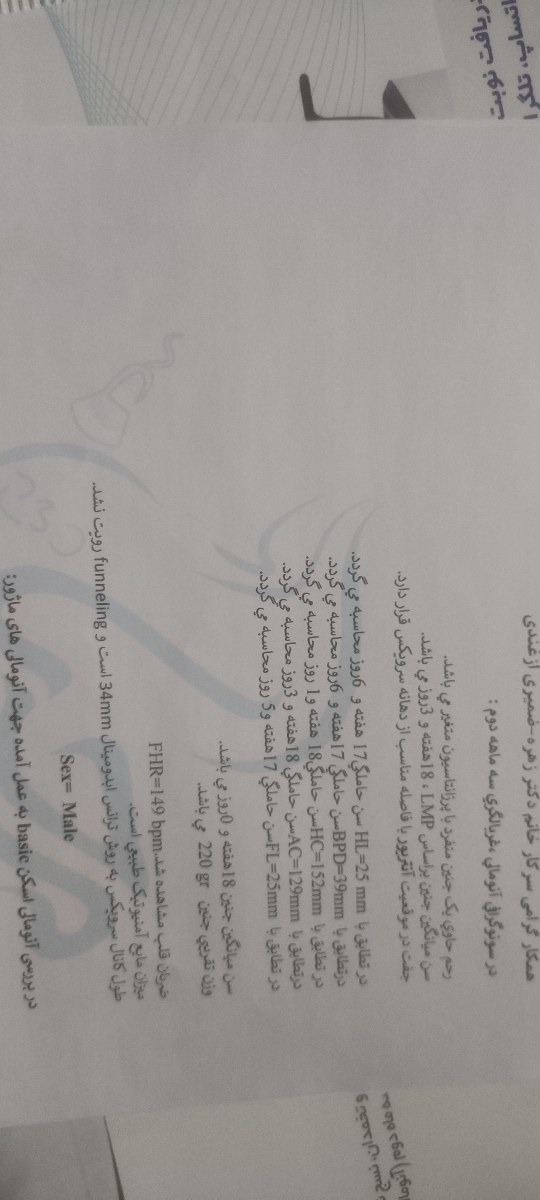 همکار گرامی سرکار خانم دکتر زهره-ضمیری ازغندی
در سونوگرافی آنومالی ،غربالگری سه ماهه دوم :
رحم حاوی یک جنین منفرد با پرزانتاسیون متغیر می باشد.
سن میانگین جنین براساس LMP ، 18هفته و 3روز می باشد.
جفت در موقعیت آنتریور با فاصله مناسب از دهانه سرویکس قرار دارد.
در تطابق با HL=25 mm سن حاملگی17 هفته و 6روز محاسبه می گردد.
درتطابق با BPD=39mmسن حاملگی 17هفته و 6روز محاسبه می گردد.
در تطابق با HC=152mmسن حاملگی18 هفته و1 روز محاسبه می گردد.
درتطابق با AC=129mmسن حاملگی 18هفته و 3روز محاسبه می گردد.
در تطابق با FL=25mmسن حاملگی 17هفته و5 روز محاسبه می گردد.
سن میانگین جنین 18هفته و 0روز می باشد.
وزن تقریبی جنین 220 gr می باشد.
ضربان قلب مشاهده شد.FHR=149 bpm
میزان مایع آمنیوتیک طبیعی است.
طول کانال سرویکس به روش ترانس ابدومینال 34mm است و funneling رویت نشد.
Sex= Male
در بررسی آنومالی اسکن basic به عمل آمده جهت آنومالی های ماژور: